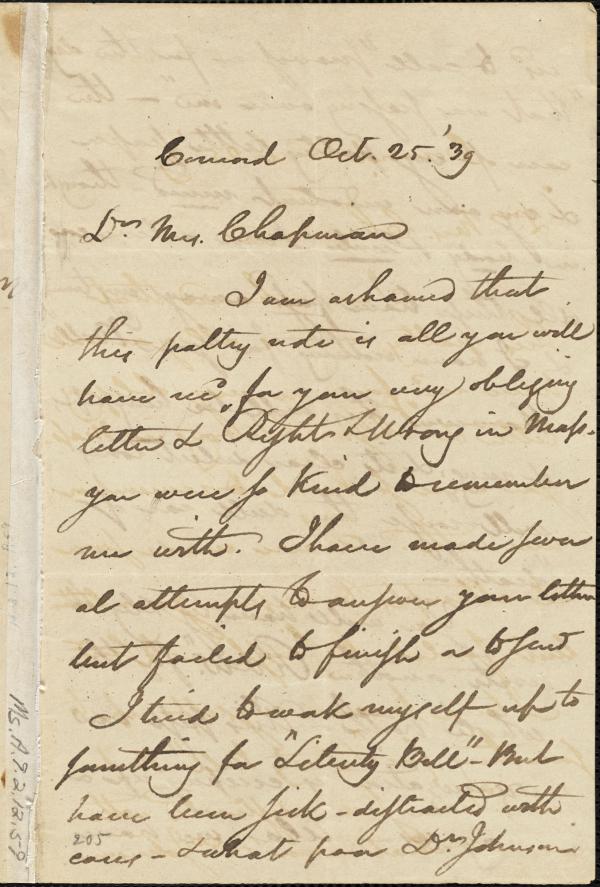 Concord Oct. 25. '39
Dr. Mrs. Chapman
I am ashamed that
this paltry note is all you will
have rec'd for your very obliging
letter & "Right & Wrong in Mass."
you were so kind to remember
me with. I have made sever
al attempts to answer your letter
but failed to finish or to send
I tried to wak myself up to
something for "Liberty Bell" - But
have been sick - distracted with
cares - & what poor Dr. Johnson
205
Ms. A.9.2.12.5-9